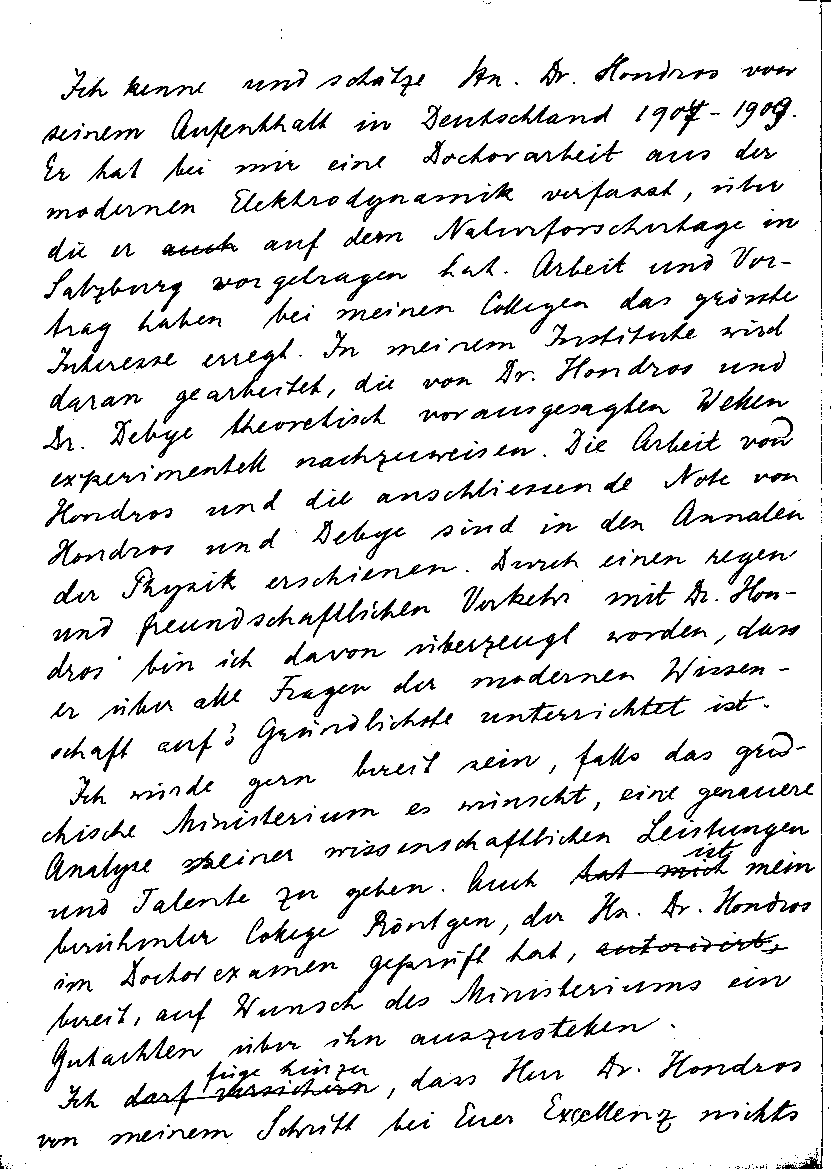 Ich kenne und schätze Hn. Dr. Hondros von
seinem Aufenthalt in Deutschland 1907-1909.
Er hat bei mir eine Doctorarbeit aus der
modernen Elektrodynamik verfasst, über
die er auch auf dem Naturforschertage in
Salzburg vorgetragen hat. Arbeit und Vor-
trag haben bei meinen Collegen das grösste
Interesse erregt. In meinem Institute wird
daran gearbeitet, die von Dr. Hondros und
Dr. Debye theoretisch vorausgesagten Wellen
experimentell nachzuweisen. Die Arbeit von
Hondros und die anschliessende Note von
Hondros und Debye sind in den Annalen
der Physik erschienen. Durch einen regen
und freundschaftlichen Verkehr mit Dr. Hon-
dros bin ich davon überzeugt worden, dass
er über alle Fragen der modernen Wissen-
schaft auf's Gründlichste unterrichtet ist.
Ich würde gern bereit sein, falls das grie-
chische Ministerium es wünscht, eine genauere
Analyse seiner wissenschaftlichen Leistungen
und Talente zu geben. Auch hat mich ist mein
berühmter College Röntgen, der Hn. Dr. Hondros
im Doctorexamen geprüft hat, autorisirt,
bereit, auf Wunsch des Ministeriums ein
Gutachten über ihn auszustellen.
Ich darf versichern füge hinzu, dass Herr Dr. Hondros
von meinem Schritt bei Euer Excellenz nichts